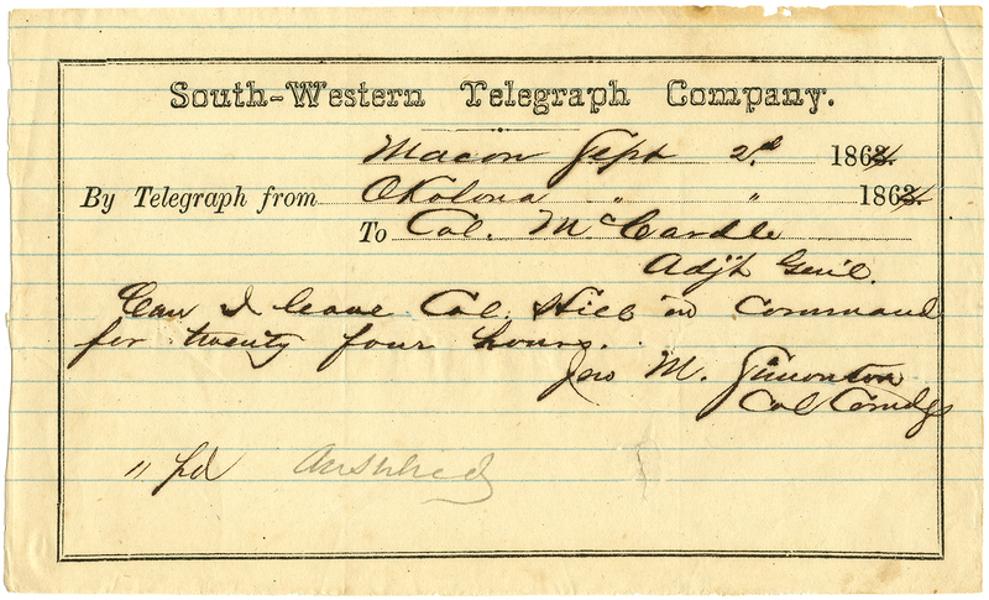 South-Western Telegraph Company.
Macon Sept 2d 1864.
By Telegraph from Okolona " " 1864.
To Col. McCardle
Adjt Genl.
Can I leave Col. Hill in Command
for twenty four hours.
Jno M. Simonton
Col Comdg
11 pd Answered